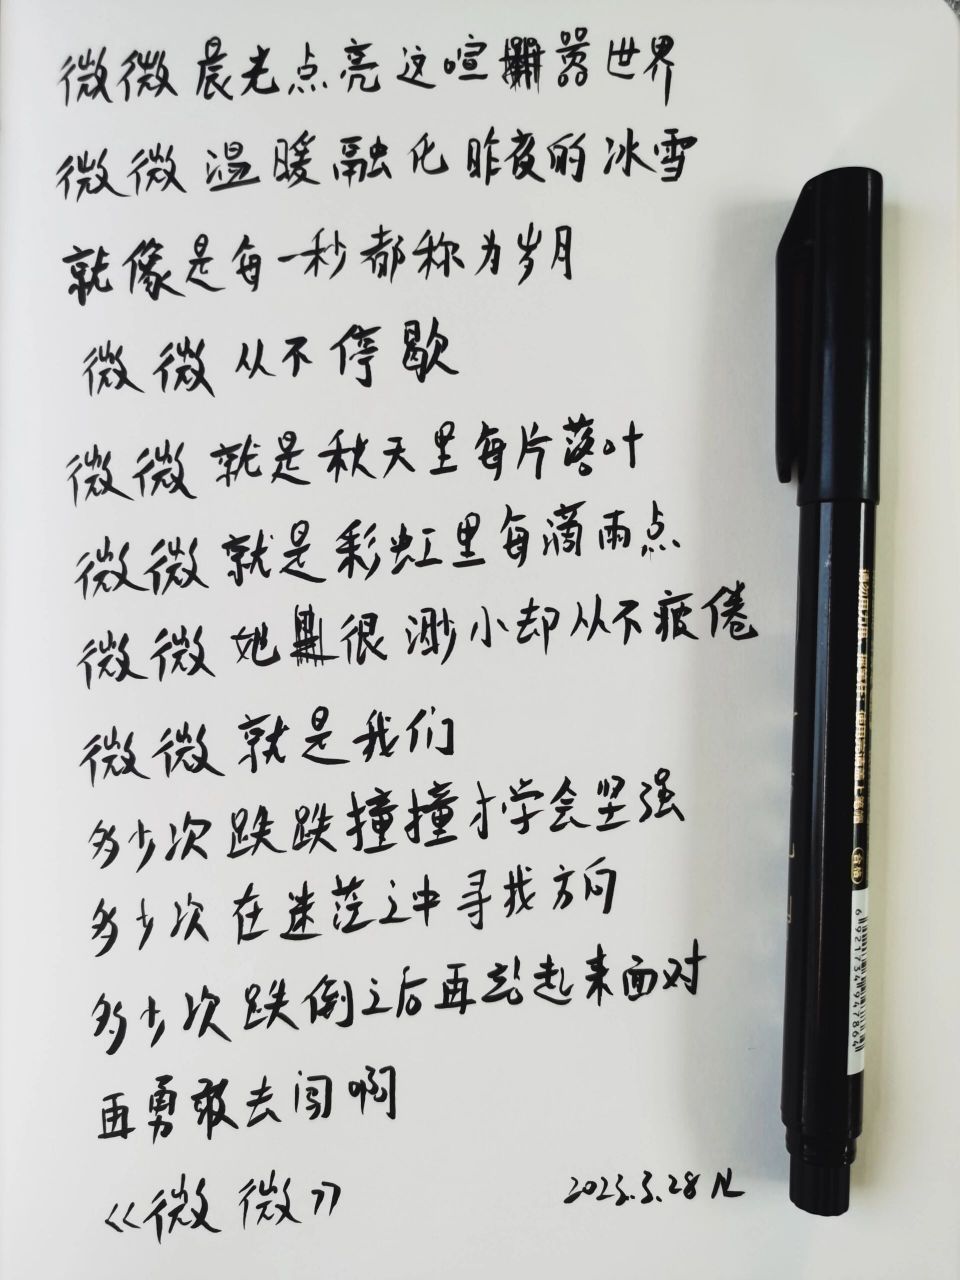 微微晨光点亮这喧嚣世界
微微温暖融化昨夜的冰雪
就像是每一秒都称为岁月
微微从不停歇
微微就是秋天里每片落叶
微微就是彩虹里每滴雨点
微微她很渺小却从不疲倦
微微就是我们
多少次跌跌撞撞才学会坚强
多少次在迷茫之中寻找方向
多少次跌倒之后再站起来面对
再勇敢去闯啊
《微微》
2023.3.28
6921734947864